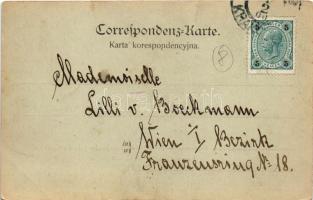 Correspondenz-Karte.
Karta korespondencyjna.
Mademoiselle
Lilli v. Boeckmann
Wien I Bezirk
Franzensring No 18.